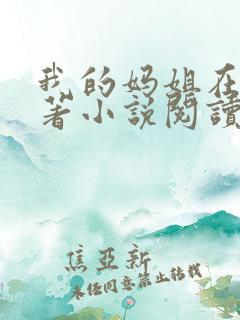 我的妈姐在
著小说閱讀
焦亞新
未经同意禁止转载